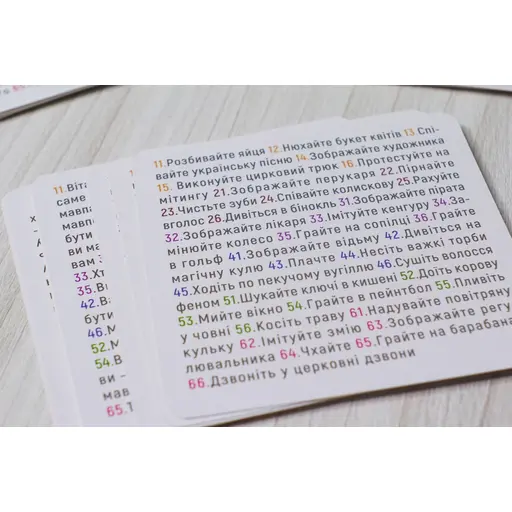 11.Розбивайте яйця 12.Нюхайте букет квітів 13.Спі-
вайте українську пісню 14.Зображайте художника
15. Виконуйте цирковий трюк 16.Протестуйте на
мітингу 21.Зображайте перукаря 22.Пірнайте
23.Чистьте зуби 24.Співайте колискову 25.Рахуйте
вголос 26.Дивіться в бінокль 31.Зображайте пірата
32.Зображайте лікаря 33.Імітуйте кенгуру 34.За-
мінюйте колесо 35.Грайте на сопілці 36.Грайте
в гольф 41.Зображайте відьму 42.Дивіться на
магічну кулю 43.Плачте 44.Несіть важкі торби
45.Ходіть по пекучому вугіллю 46.Сушіть волосся
феном 51.Шукайте ключі в кишені 52.Доїть корову
53.Мийте вікно 54.Грайте в пейнтбол 55.Пливіть
у човні 56.Косіть траву 61.Надувайте повітряну
кульку 62.Імітуйте змію 63.Зображайте регу
лювальника 64.Чхайте 65.Грайте на барабана
66.Дзвоніть у церковні дзвони
11.Віта
саме
мавпа
мавп
бути
ви ма
вам
33.Хт
35.Ви
42.Ва
бути
46.М
52.М
54.В
ви -
мав
65.Т